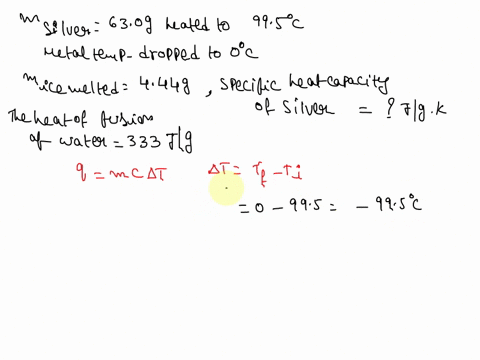 m silver = 63.0g heated to 99.5°C
Metal temp- dropped to 0°C
m ice melted = 4.44g , specific heat capacity of silver = ? J/g.K
The heat of fusion of water = 333 J/g
q = mcΔT ΔT = Tf - Ti
= 0 - 99.5 = - 99.5°C